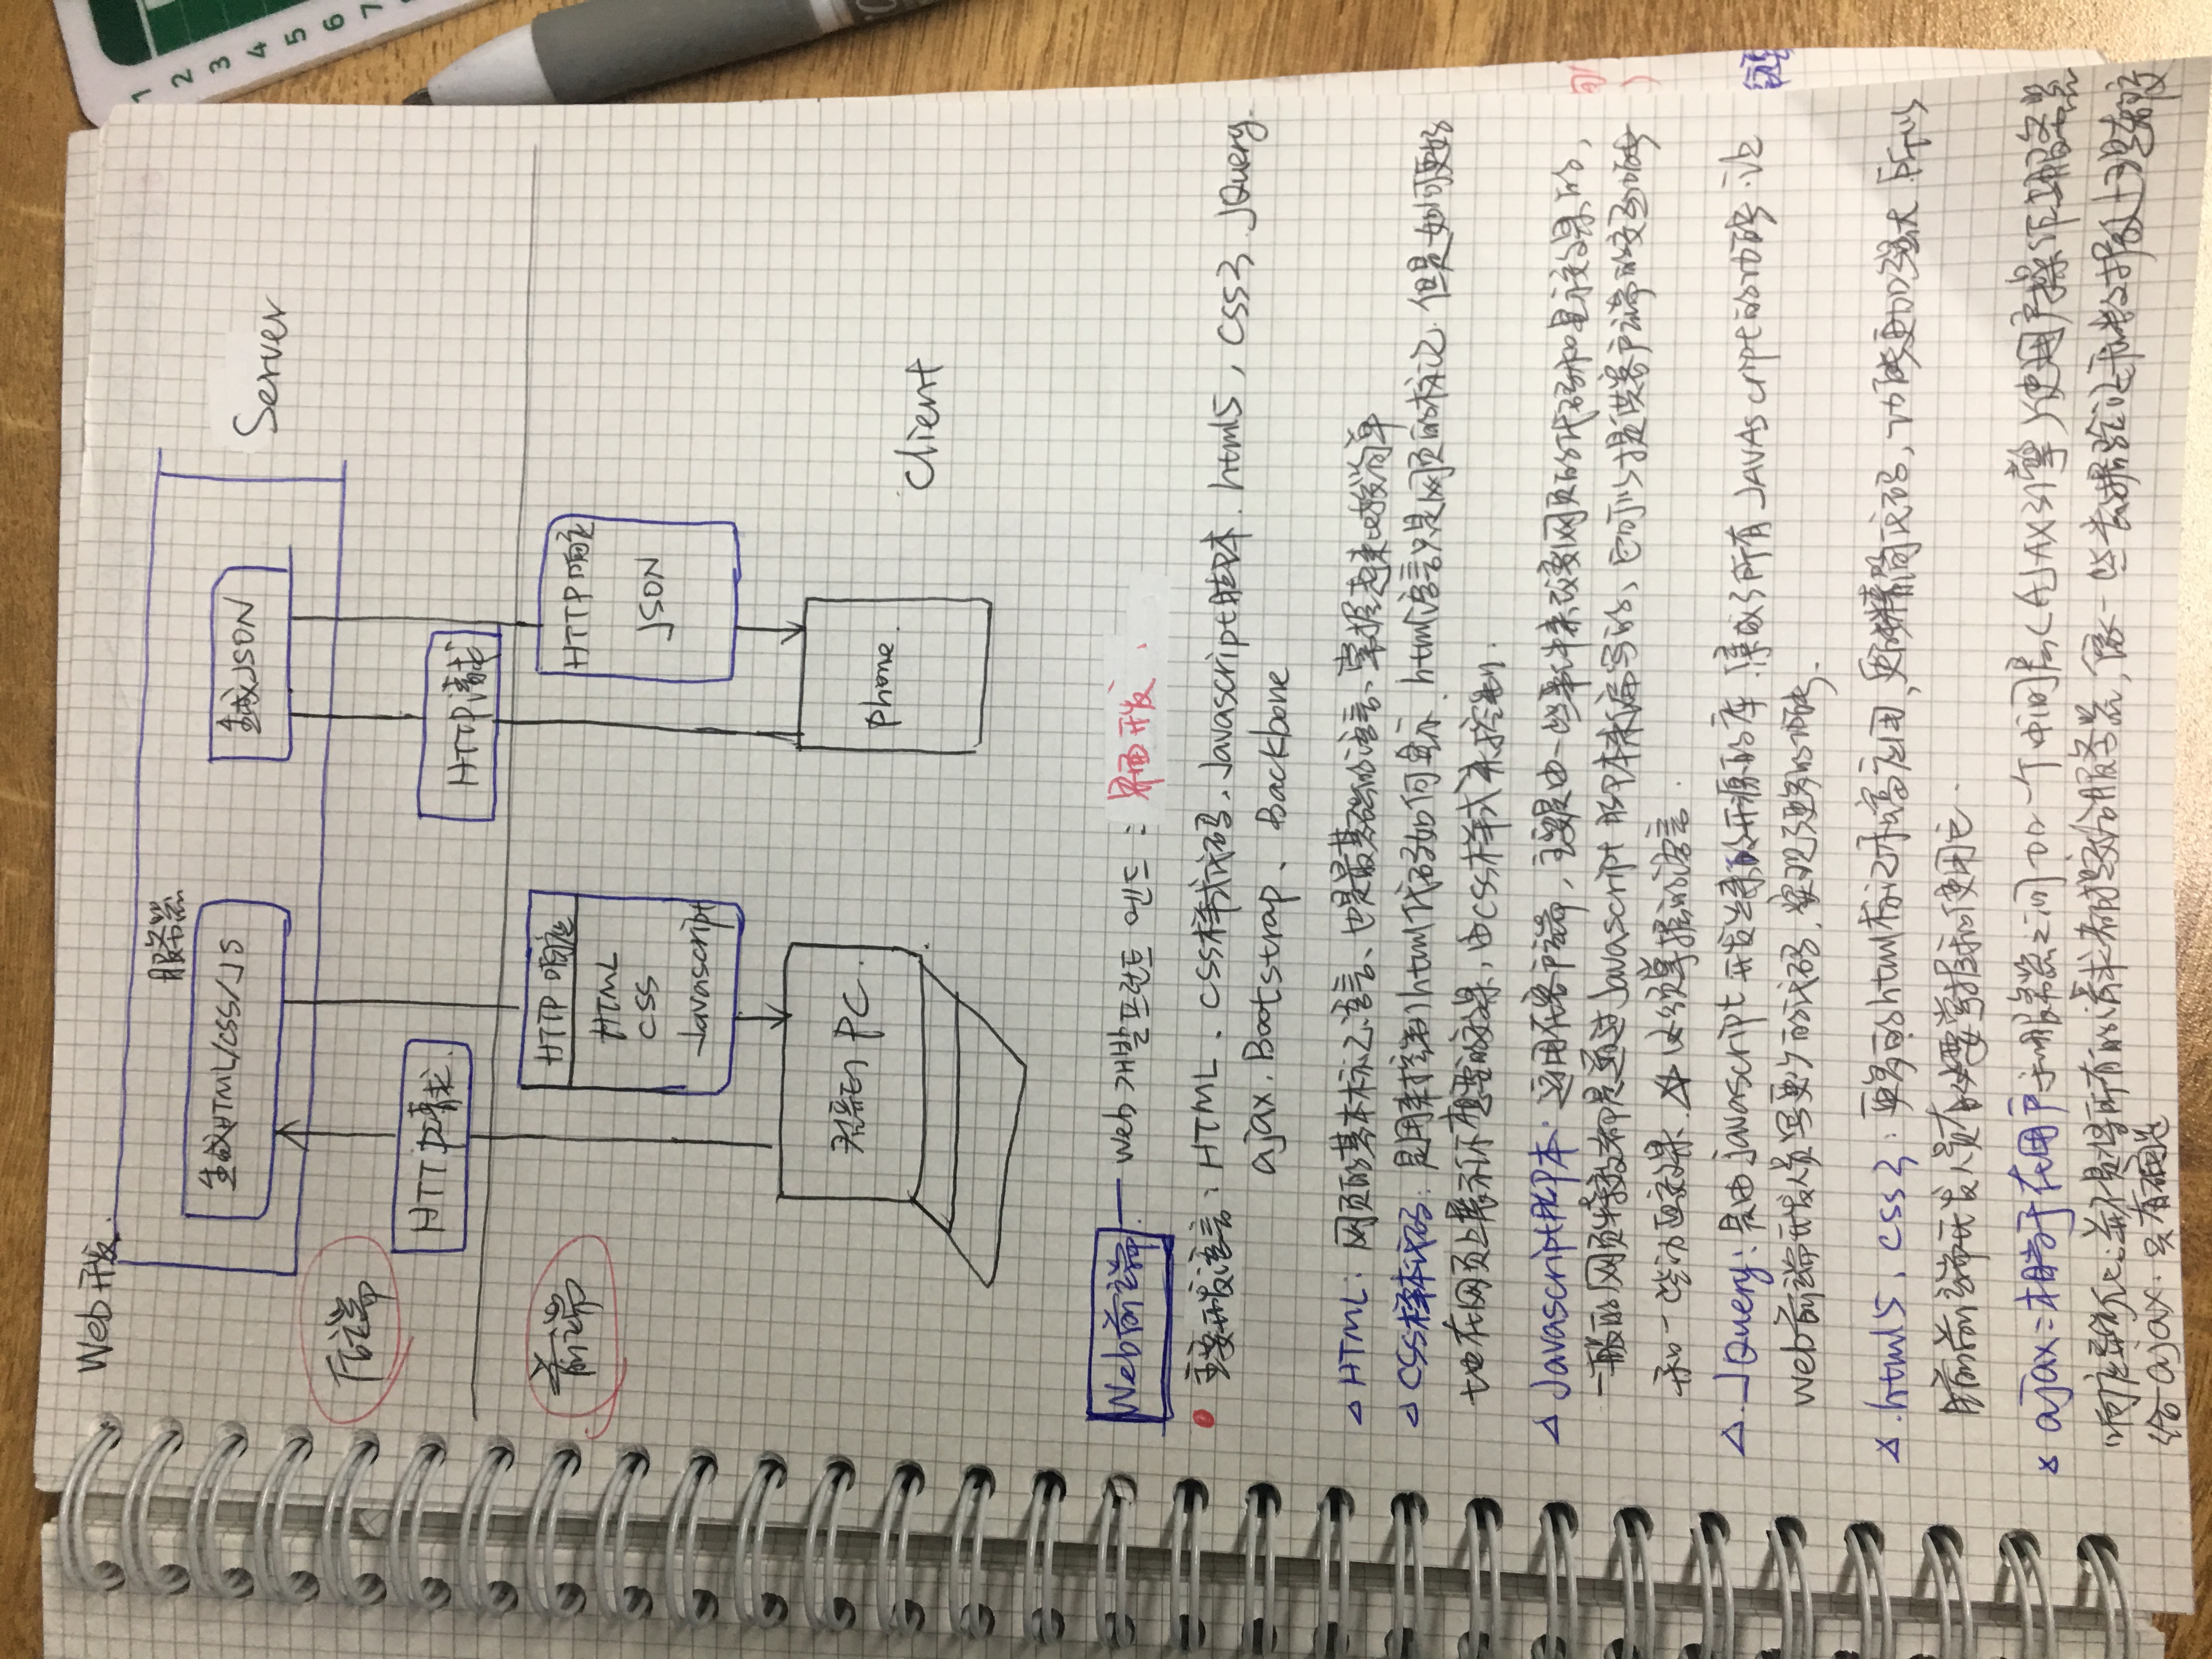 Web开发.
服务器
生成HTML/CSS/JS
生成JSON
Server
后端
HTTP请求.
HTTP请求
前端
HTTP 响应
HTML
CSS
Javascript
HTTP响应
JSON
컴퓨터 PC.
phone.
Client
Web前端. — Web 개발 프런트 엔드 : 界面开发.
主要开发语言: HTML、CSS样式代码、Javascript脚本. html5, CSS3. JQuery.
ajax. Bootstrap、Backbone
△ HTML: 网页的基本标记语言、也是最基础的语言、掌握起来比较简单
△ CSS样本代码: 是用来控制html代码如何显示. html语言只是网页的标记. 但是如何更好
地在网页上展示你想要的效果, 由CSS样式来控制.
△ Javascript脚本: 运用在客户端, 主要是由一些事件来改变网页的代码和显示效果的,
一般的网页特效都是通过Javascript脚本来编写的、它可以提供客户端的交互功能
和一些动画效果. 必须掌握的语言.
△. JQuery: 是由javascript开发出来的开源的库. 集成了所有JAVAscript的功能. 让
web前端开发人员写更少的代码, 实现更多的功能.
△. html5, CSS3: 更多的html标记和高应用, 更能精简代码, 功能更加强大. 所以
目前前端开发人员有必要掌握和使用它.
ajax: 相当于在用户和服务器之间加一个中间层(AJAX引擎)使用户操作与服务器
响应异步化. 并不是将所有的请求都提交给服务器, 像一些数据验证和数据处理都交
给ajax. 只有确定
1
2
3
4
5
6
7